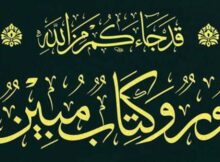 قَدْ جَاءَكُمْ مِنَ اللَّهِ
نُورٌ وَكِتَابٌ مُبِينٌ